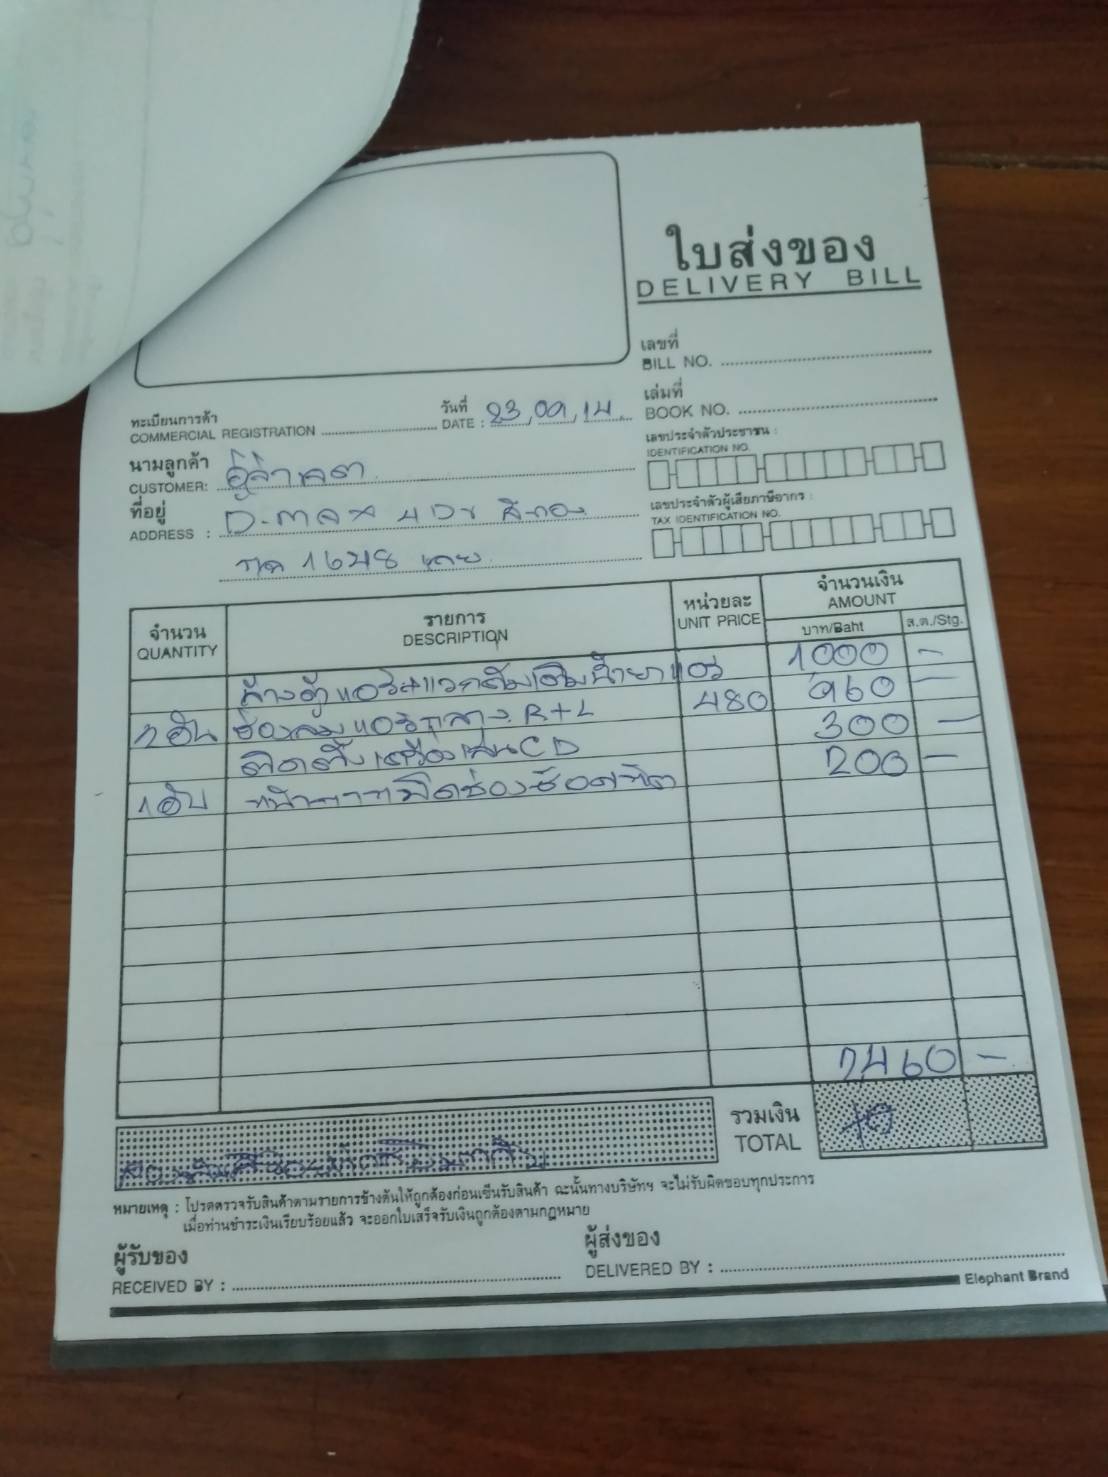 ใบส่งของ
DELIVERY BILL
เลขที่
BILL NO.
เล่มที่
BOOK NO.
ทะเบียนการค้า
COMMERCIAL REGISTRATION
วันที่
DATE : 23, 09, 14
เลขประจำตัวประชาชน :
IDENTIFICATION NO.
นามลูกค้า
CUSTOMER:
ที่อยู่
ADDRESS : D-max 4Dr สีทอง
1648 เลย
เลขประจำตัวผู้เสียภาษีอากร :
TAX IDENTIFICATION NO.
จำนวน
QUANTITY
รายการ
DESCRIPTION
หน่วยละ
UNIT PRICE
จำนวนเงิน
AMOUNT
บาท/Baht
ส.ต./Stg.
ล้างตู้แอร์+แวคคั่มเติมน้ำยาแอร์ 1000 -
2 อัน ช่องลมแอร์กลาง R+L 480 960 -
ติดตั้งเครื่องเล่นCD 300 -
1 อัน 200 -
2460 -
รวมเงิน
TOTAL
หมายเหตุ : โปรดตรวจรับสินค้าตามรายการข้างต้นให้ถูกต้องก่อนเซ็นรับสินค้า ฉะนั้นทางบริษัทฯ จะไม่รับผิดชอบทุกประการ
เมื่อท่านชำระเงินเรียบร้อยแล้ว จะออกใบเสร็จรับเงินถูกต้องตามกฎหมาย
ผู้รับของ
RECEIVED BY :
ผู้ส่งของ
DELIVERED BY :
Elephant Brand